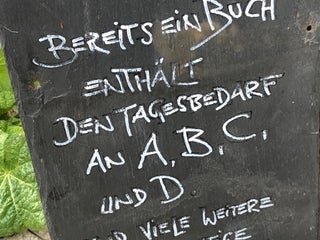 BEREITS EIN BUCH
ENTHÄLT
DEN TAGESBEDARF
AN A, B, C,
UND D.
UND VIELE WEITERE